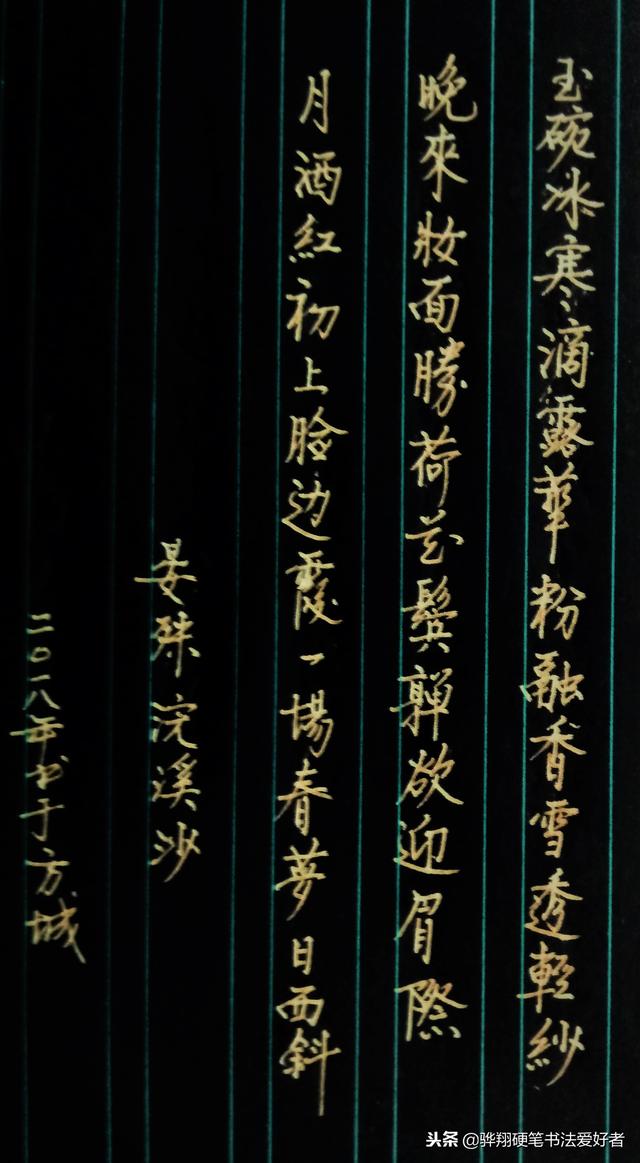 玉碗冰寒滴露華粉融香雪透輕紗
晚來妝面勝荷花鬓嚲欲迎眉際
月酒紅初上脸边霞一場春夢日西斜
晏殊浣溪沙
二〇一八年书于方城
头条 @骅翔硬笔书法爱好者